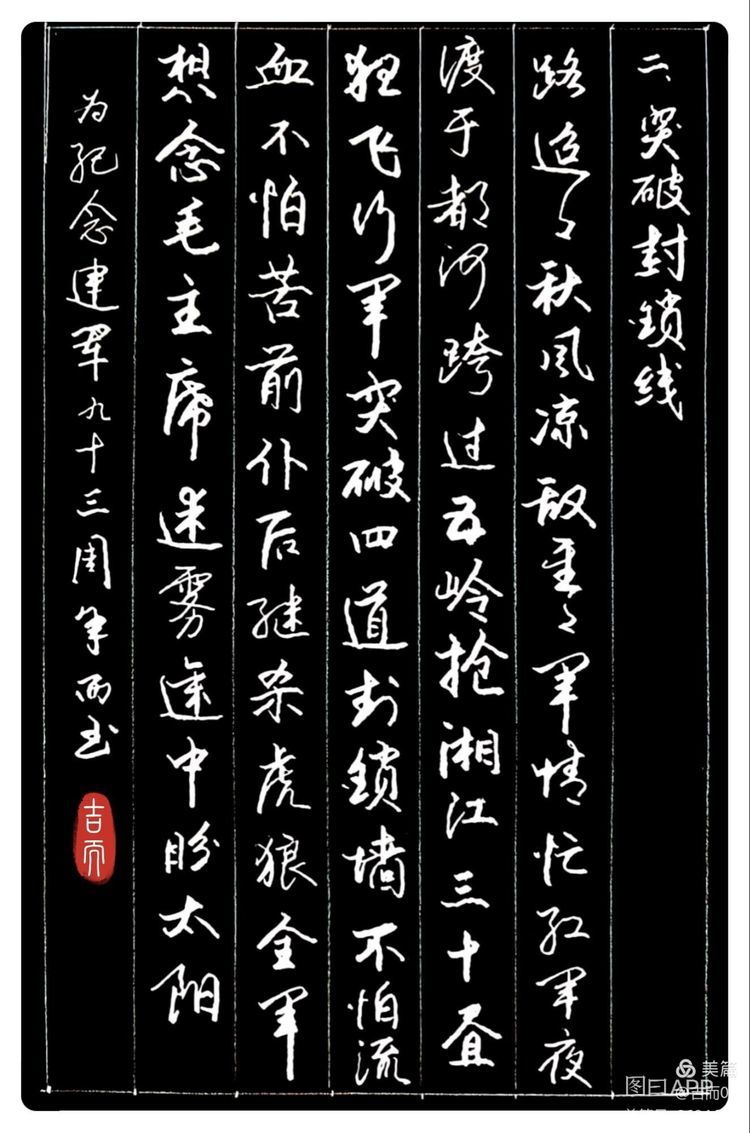 二、突破封鎖线
路迢々秋风凉敌重々军情忙红军夜
渡于都河跨过五岭抢湘江三十昼
狂飞行军突破四道封鎖墙不怕流
血不怕苦前仆后继杀虎狼全军
想念毛主席迷雾途中盼太阳
为纪念建军九十三周年而书
吉而
美篇
图曰APP
@吉而0